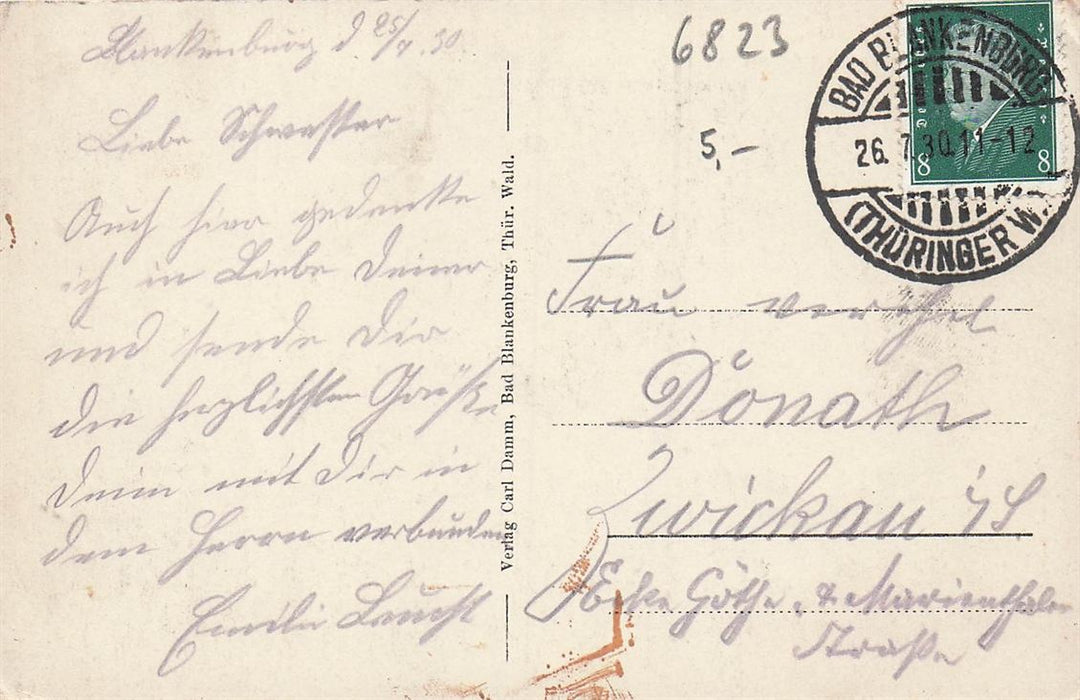 Blankenburg d 25/7. 30.
Liebe Schwester
Auch hier gedenke
ich in Liebe Deiner
und sende Dir
die herzlichsten Grüße
Deine mit Dir in
dem Herrn verbunden
Emilie
Verlag Carl Damm, Bad Blankenburg, Thür. Wald.
6823
5,-
BAD BLANKENBURG
26. 7. 30. 11-12
(THÜRINGER W.
8 8
Frau verehel
Donath
Zwickau i/S
Ecke Göthe & Marienthaler
Straße